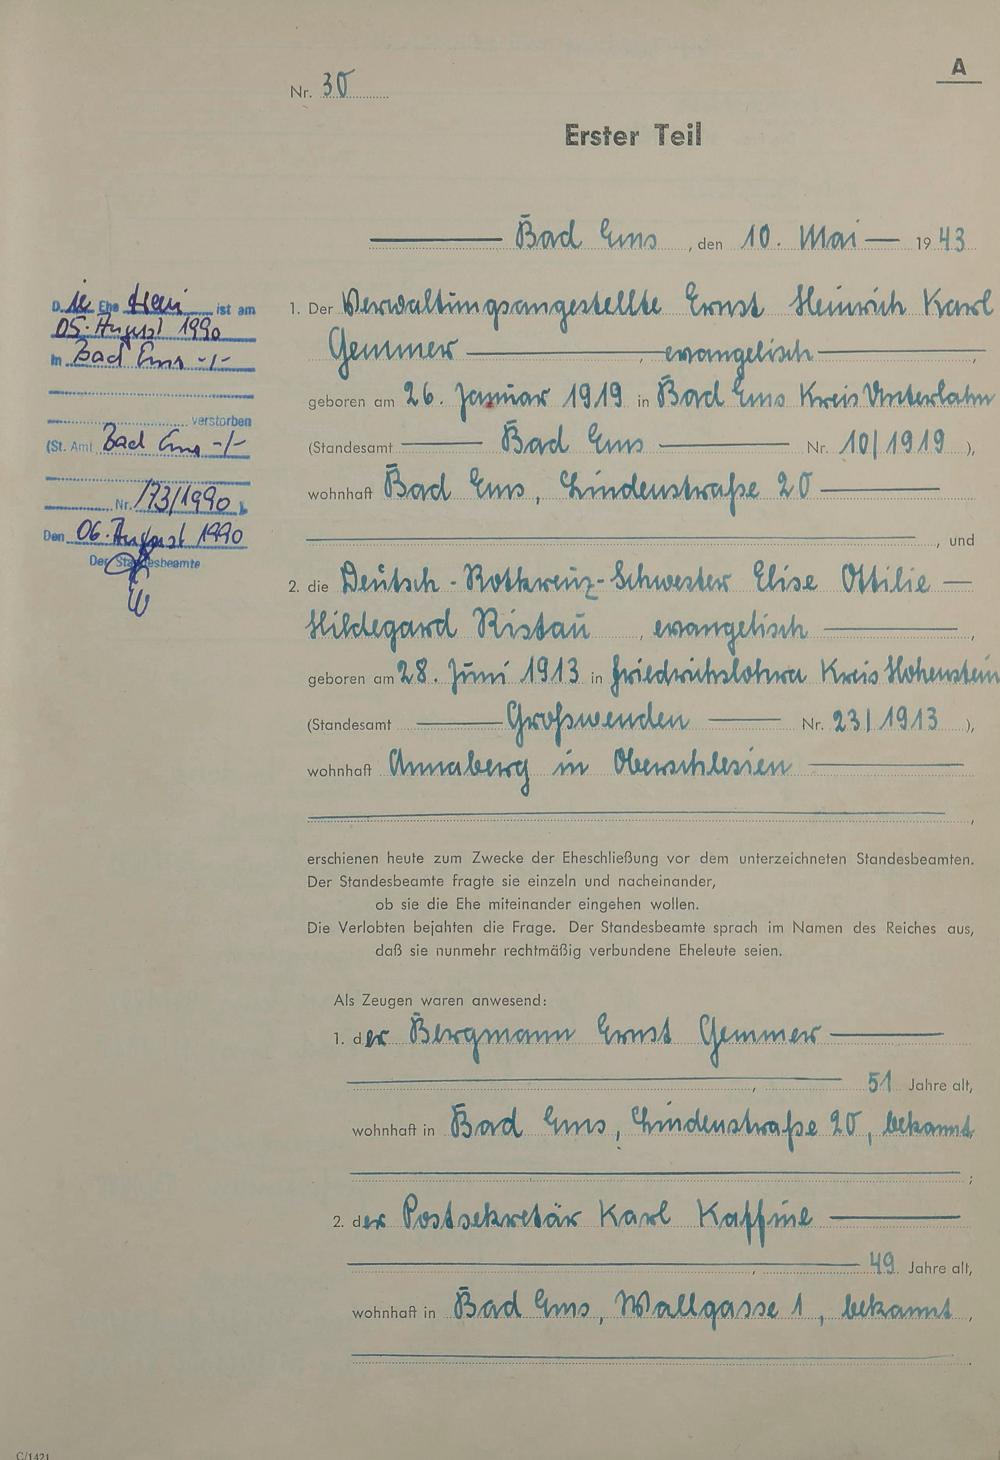 A
Nr. 30
Erster Teil
Bad Ems, den 10. Mai 1943
D.ie Ehefrau ist am
05. August 1990
in Bad Ems -/-
verstorben
(St. Amt Bad Ems -/-
Nr. 173/1990)
Den 06. August 1990
Der Standesbeamte
1. Der Verwaltungsangestellte Ernst Heinrich Karl
Gemmer, evangelisch,
geboren am 26. Januar 1919 in Bad Ems Kreis Unterlahn
(Standesamt Bad Ems Nr. 10/1919),
wohnhaft Bad Ems, Lindenstraße 20
, und
2. die Deutsch-Rotkreuz-Schwester Elise Ottilie
Hildegard Ristau, evangelisch,
geboren am 28. Juni 1913 in Friedrichslohra Kreis Hohenstein
(Standesamt Großwenden Nr. 23/1913),
wohnhaft Annaberg in Oberschlesien
,
erschienen heute zum Zwecke der Eheschließung vor dem unterzeichneten Standesbeamten.
Der Standesbeamte fragte sie einzeln und nacheinander,
ob sie die Ehe miteinander eingehen wollen.
Die Verlobten bejahten die Frage. Der Standesbeamte sprach im Namen des Reiches aus,
daß sie nunmehr rechtmäßig verbundene Eheleute seien.
Als Zeugen waren anwesend:
1. der Bergmann Ernst Gemmer
, 51 Jahre alt,
wohnhaft in Bad Ems, Lindenstraße 20, bekannt
;
2. der Postsekretär Karl Kaffine
, 49 Jahre alt,
wohnhaft in Bad Ems, Wallgasse 1, bekannt,
.
C/1421